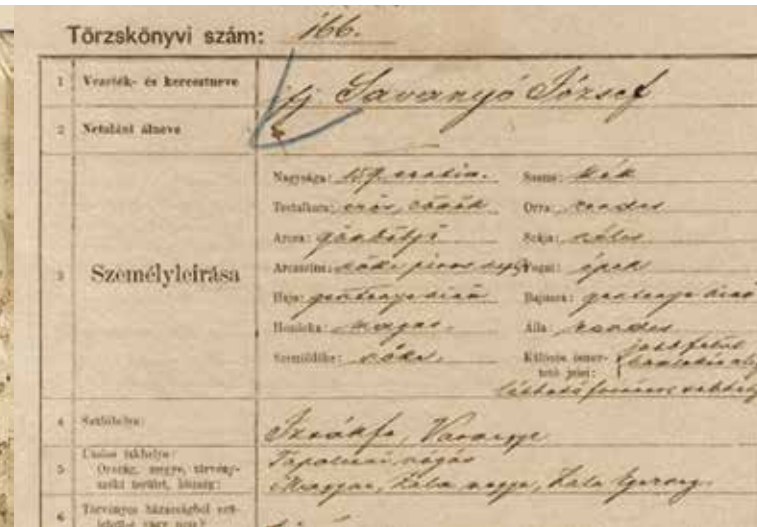 Törzskönyvi szám: 166.
1 Vezeték- és keresztneve ifj Savanyó József
2 Netaláni álneve
3 Személyleirása
Nagysága: 159 centim. Szeme: kék
Testalkata: erős, Orra: rendes
Arcza: gömbölyü Szája: széles
Arczszine: szőke piros Fogai: épek
Haja: gesztenye szinü Bajusza: gesztenye szinü
Homloka: magas. Álla: rendes
Szemöldöke: szőke. Különös ismertető jelei:
4 Szülőhelye: Izsákfa, Vasmegye
5 Utolsó lakhelye: Tapolczai
Ország, megye, törvényszéki terület, község: Magyar, Zala megye, Zala
6 Törvényes házasságból született-e vagy nem?